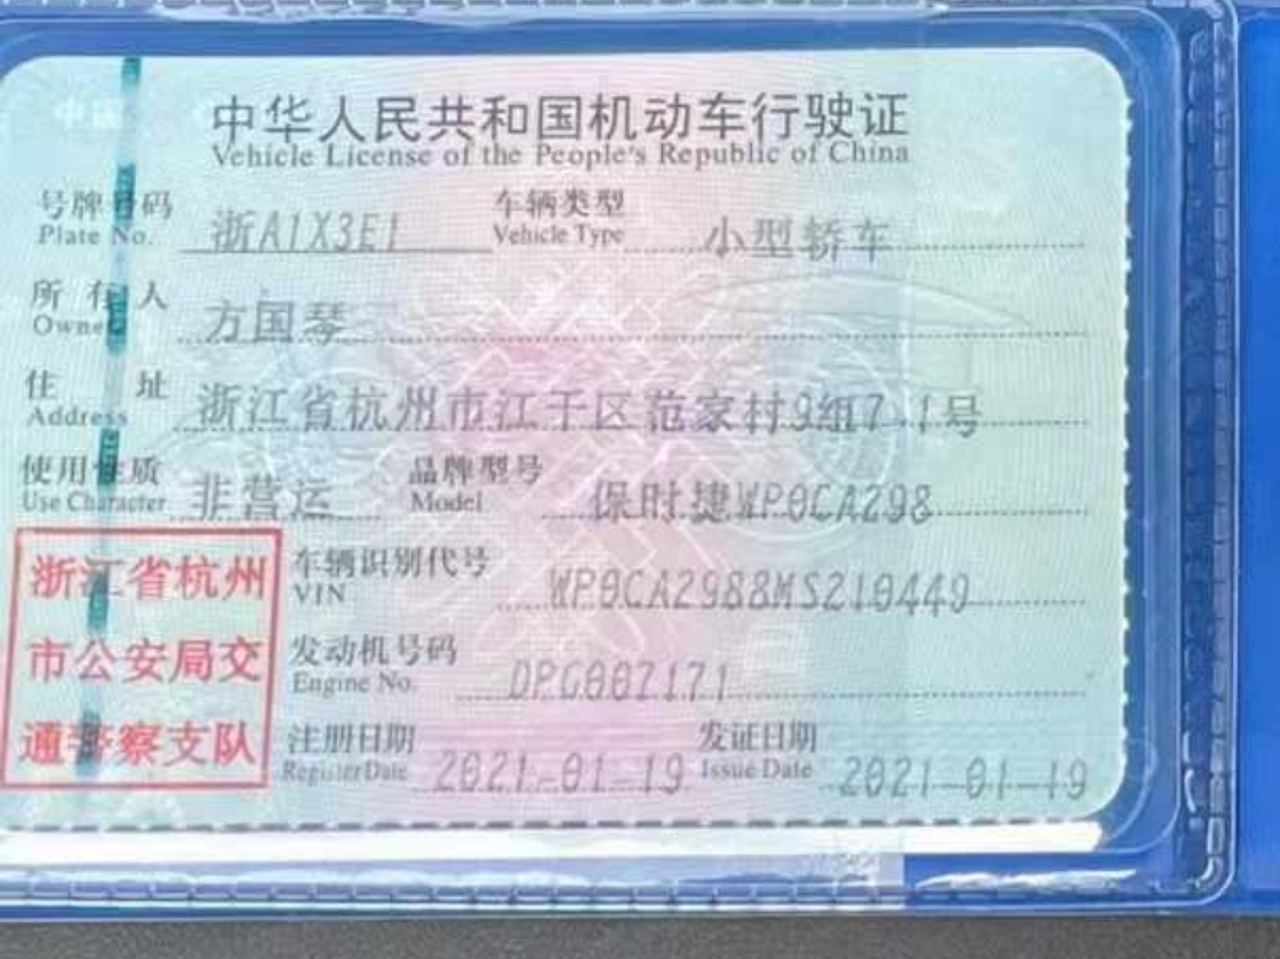 中华人民共和国机动车行驶证
Vehicle License of the People's Republic of China
号牌号码 浙A1X3E1 车辆类型 小型轿车
Plate No. Vehicle Type
所有人 方国琴
Owner
住址 浙江省杭州市江干区范家村9组7-1号
Address
使用性质 非营运 品牌型号 保时捷WP0CA298
Use Character Model
浙江省杭州
市公安局交
通警察支队
车辆识别代号 WP0CA2988MS210449
VIN
发动机号码 DPG007171
Engine No.
注册日期 2021-01-19 发证日期 2021-01-19
Register Date Issue Date